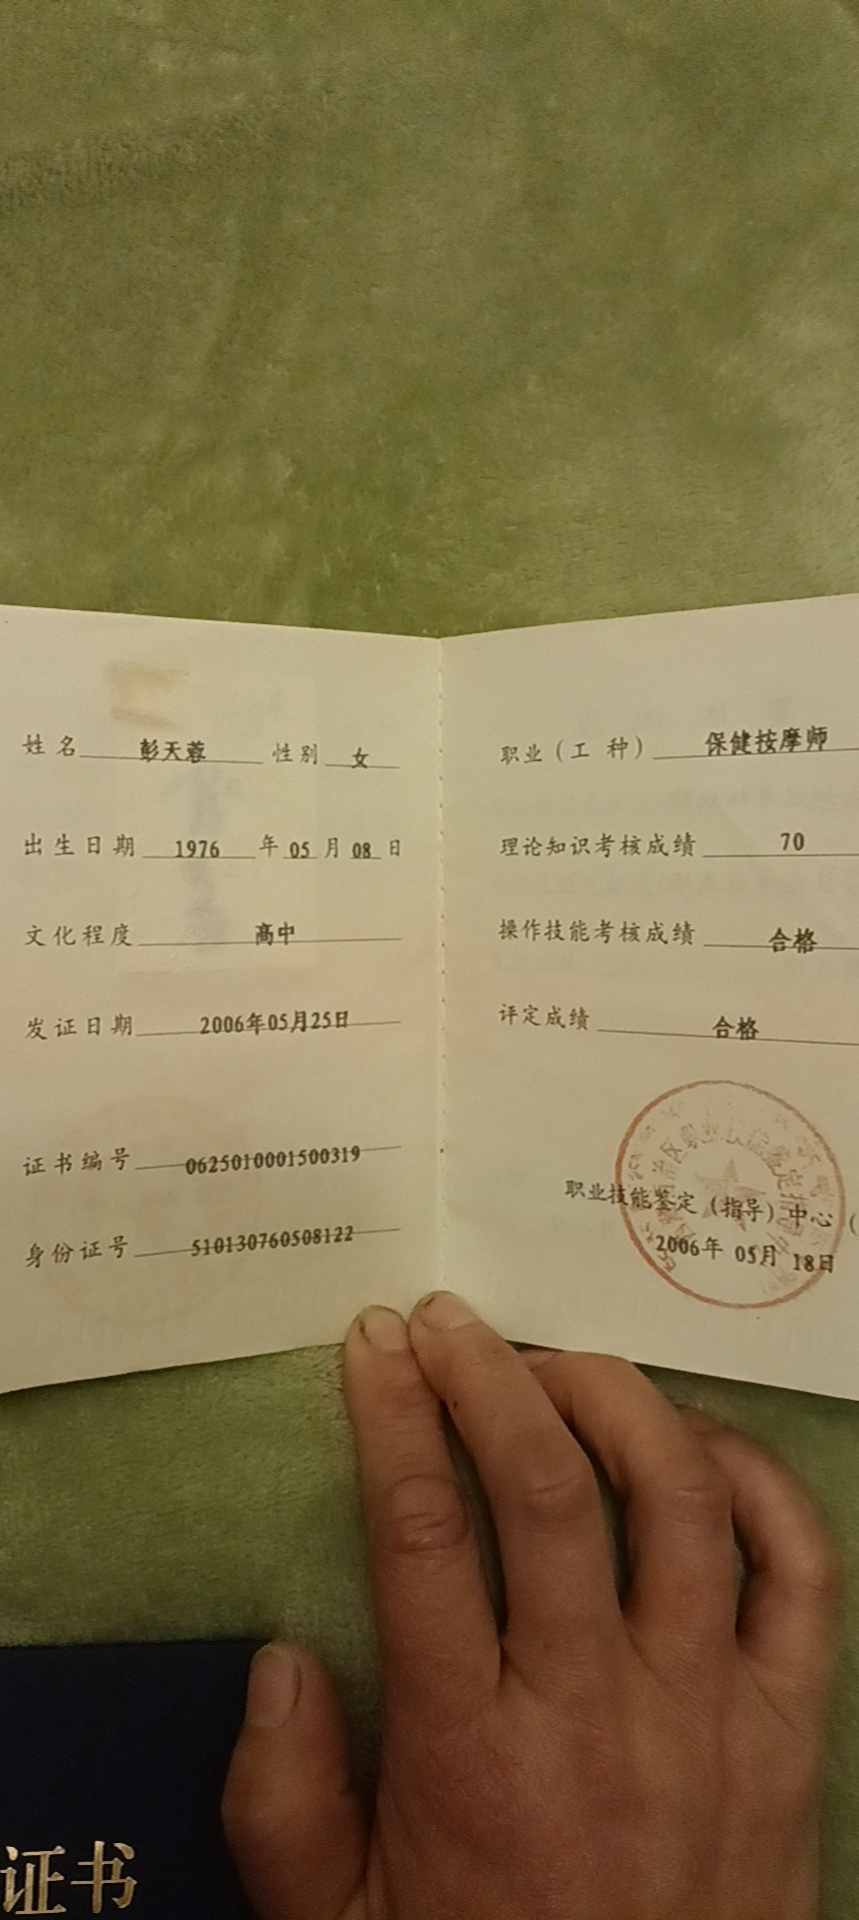 姓名 彭天蓉 性别 女
出生日期 1976 年 05 月 08 日
文化程度 高中
发证日期 2006年05月25日
证书编号 0625010001500319
身份证号 510130760508122
职业（工种） 保健按摩师
理论知识考核成绩 70
操作技能考核成绩 合格
评定成绩 合格
职业技能鉴定（指导）中心（
2006年 05月 18日
证书